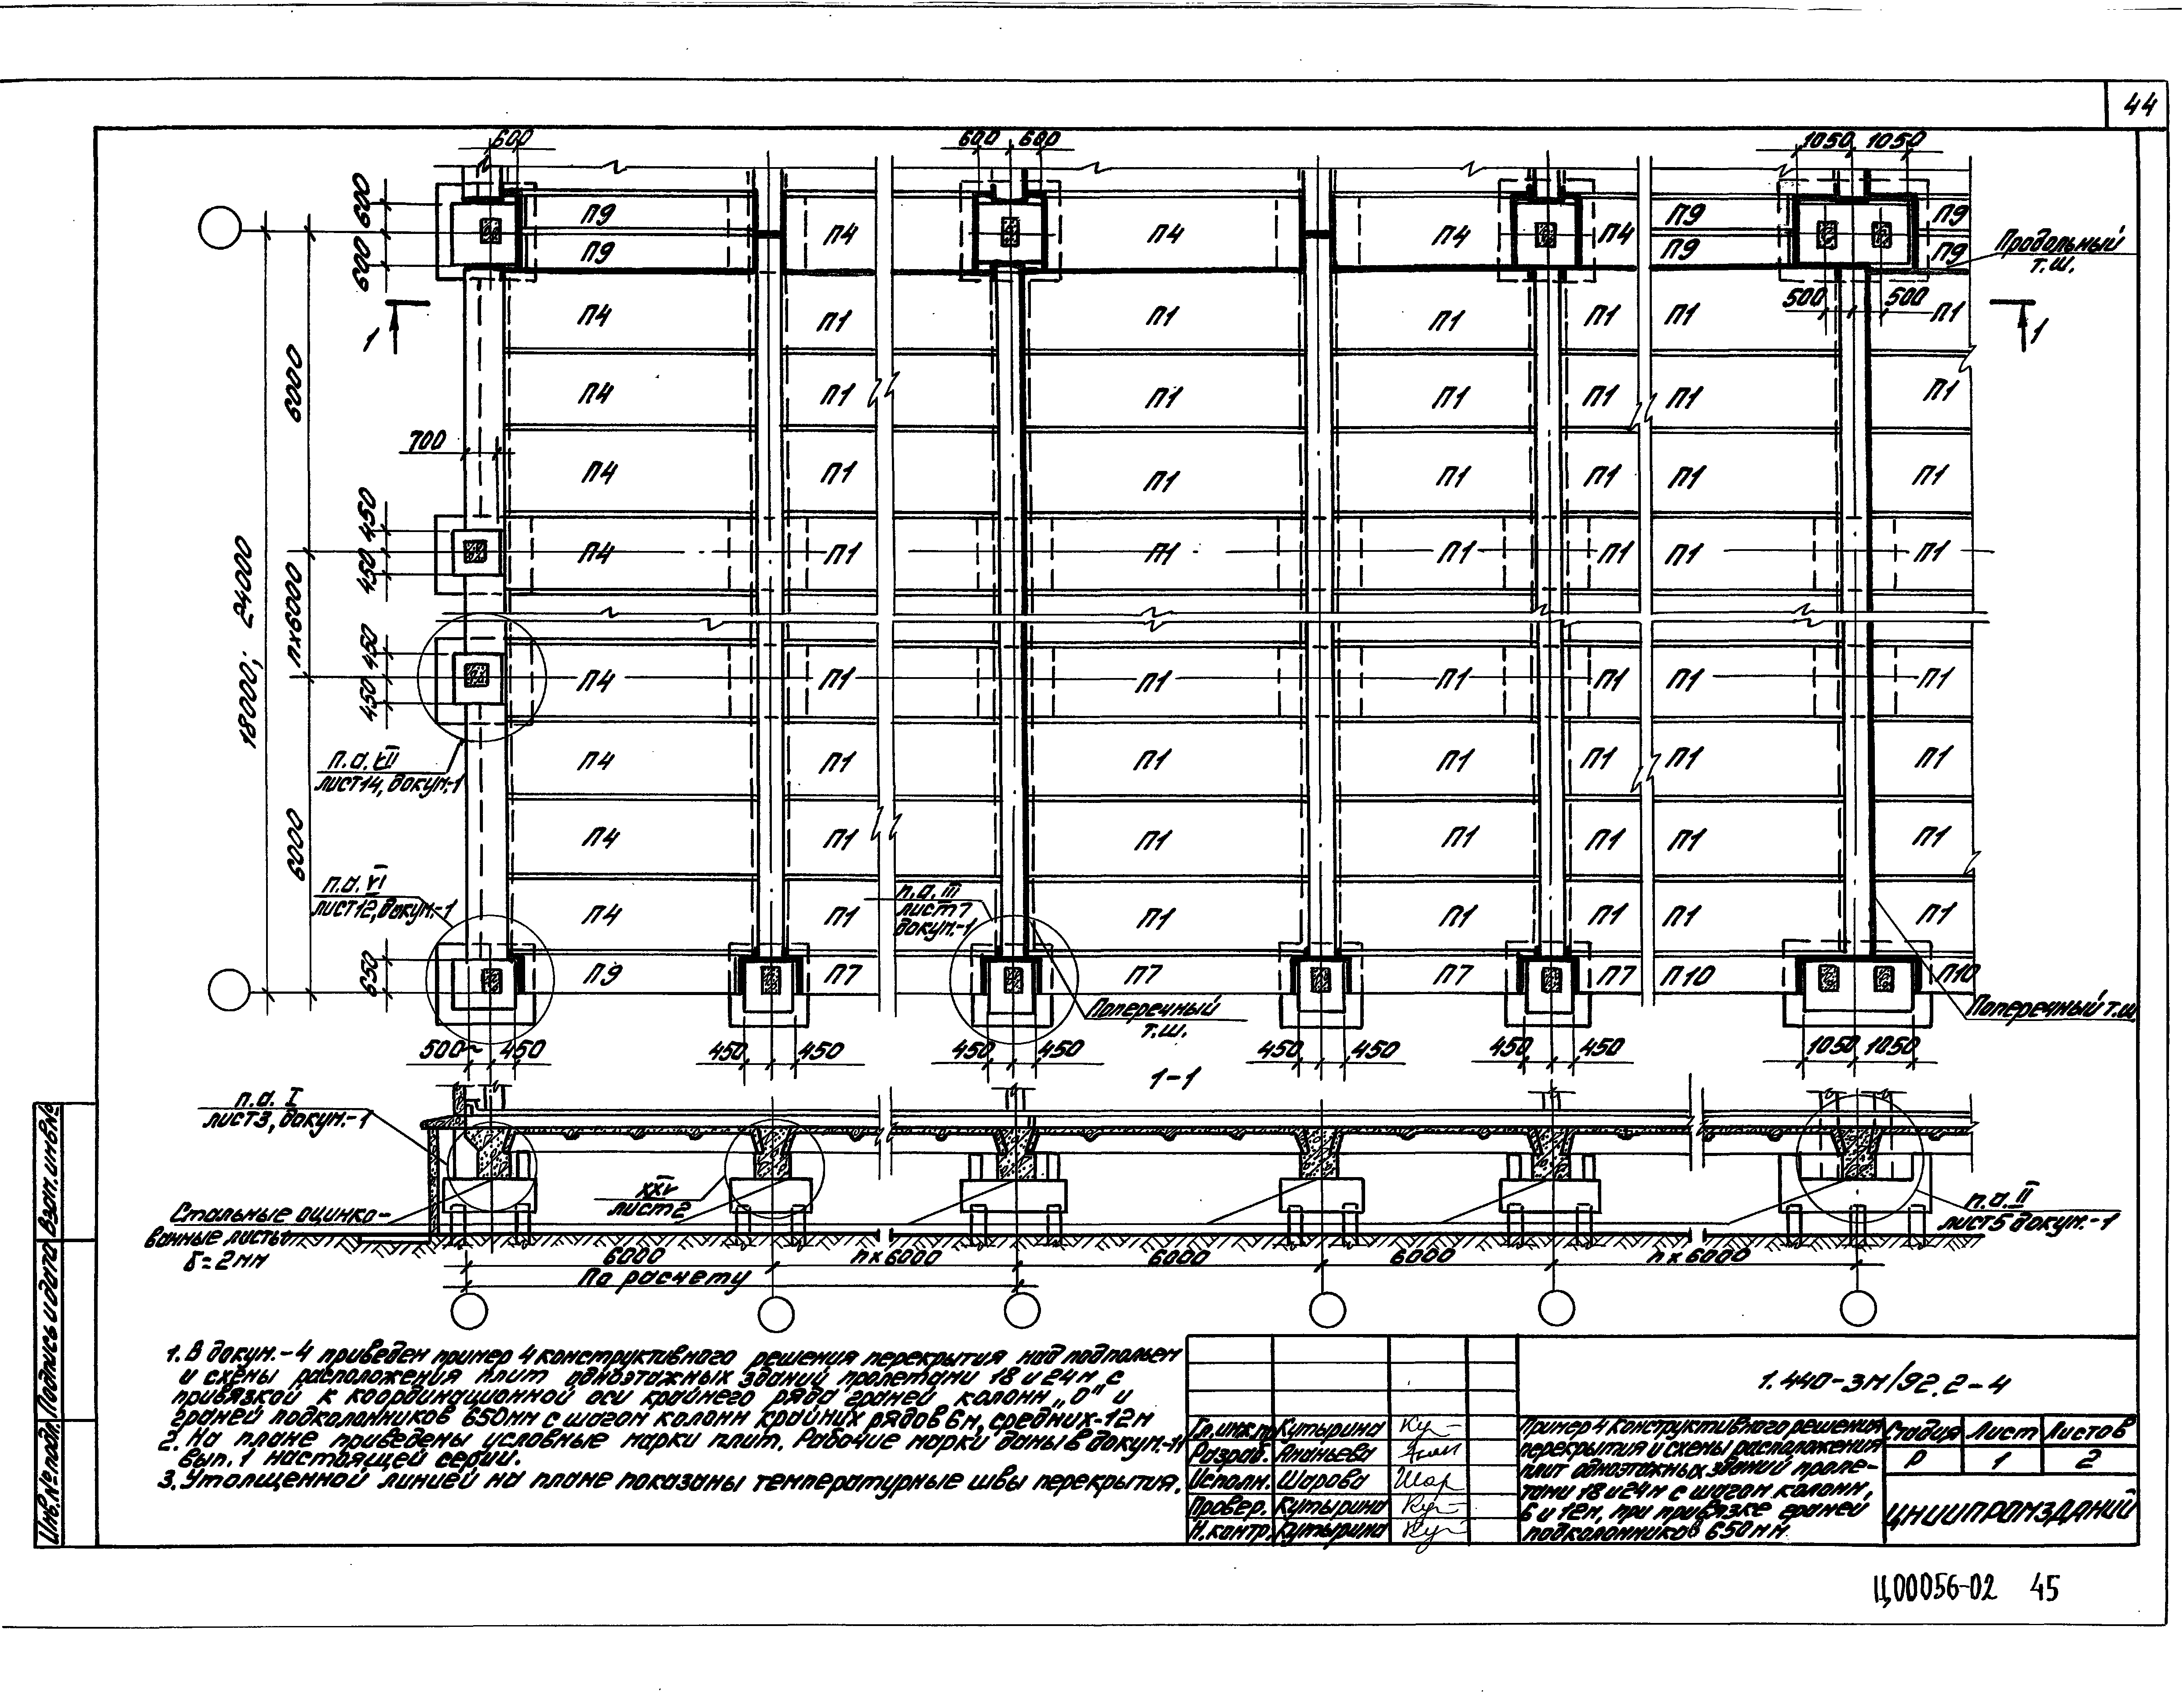 44
600
600 600
1050 1050
600
600
П9
П4
П4
П4
П4
П9
П9
П9
П9
П9
Продольный
т.ш.
500 500
1
П4 П1 П1 П1 П1 П1 П1
1
6000
П4 П1 П1 П1 П1 П1 П1
700
П4 П1 П1 П1 П1 П1 П1
450
450
П4 П1 П1 П1 П1 П1 П1
18000; 24000
n×6000
450
450
П4 П1 П1 П1 П1 П1 П1
п.а. VII
лист 14, докум.-1
П4 П1 П1 П1 П1 П1 П1
6000
П4 П1 П1 П1 П1 П1 П1
п.а. VI
лист 12, докум.-1
п.а. III
лист 7
докум.-1
П4 П1 П1 П1 П1 П1 П1
650
П9 П7 П7 П7 П7 П10 П10
Поперечный
т.ш.
Поперечный т.ш.
500 450 450 450 450 450 450 450 450 450 1050 1050
1-1
п.а. I
лист 3, докум.-1
XXV
лист 2
п.а. II
лист 5 докум.-1
Стальные оцинко-
ванные листы
δ=2мм
6000 n×6000 6000 6000 n×6000
По расчету
1. В докум.-4 приведен пример 4 конструктивного решения перекрытия над подпольем
и схемы расположения плит одноэтажных зданий пролетами 18 и 24м с
привязкой к координационной оси крайнего ряда граней колонн „О" и
граней подколонников 650мм с шагом колонн крайних рядов 6м, средних-12м
2. На плане приведены условные марки плит. Рабочие марки даны в докум.-11
вып.1 настоящей серии.
3. Утолщенной линией на плане показаны температурные швы перекрытия.
1.440-3м/92.2-4
Гл.инж.пр. Кутырина
Разраб. Ананьева
Исполн. Шарова
Провер. Кутырина
Н.контр. Кутырина
Пример 4 конструктивного решения
перекрытия и схемы расположения
плит одноэтажных зданий проле-
тами 18 и 24м с шагом колонн,
6 и 12м, при привязке граней
подколонников 650мм
Стадия Лист Листов
Р 1 2
ЦНИИПРОМЗДАНИЙ
Инв.№ подл. Подпись и дата Взам.инв.№
Ц00056-02 45